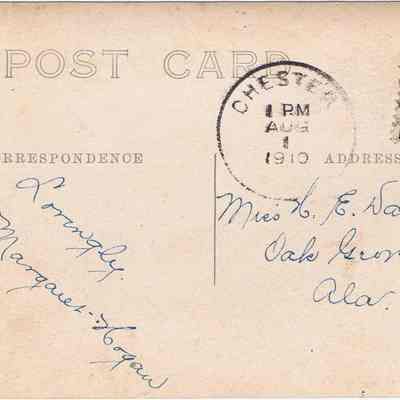 POST CARD
CHESTER
1 PM
AUG
1
1910
CORRESPONDENCE
ADDRESS
Lovingly
Margaret Hogan
Miss H. E. Da
Oak Grov
Ala.